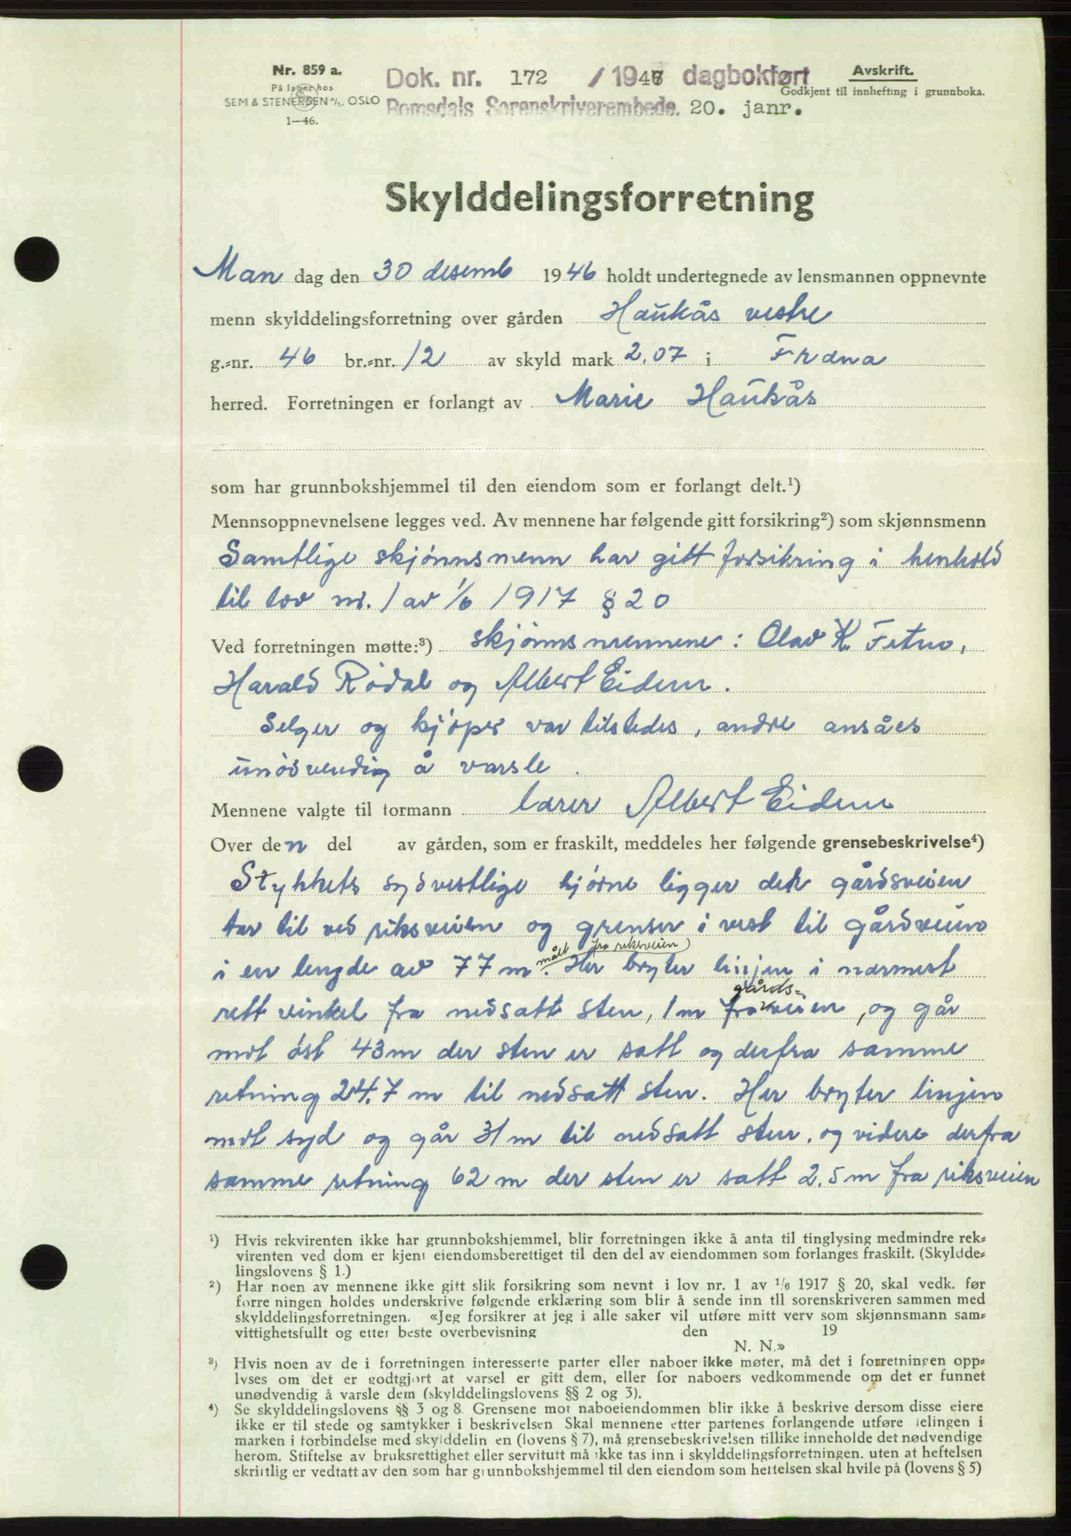 Nr. 859 a.
På lager hos
SEM & STENERSEN A/S, OSLO
1—46.
Dok. nr. 172 / 1947 dagbokført
Romsdals Sorenskriverembede. 20. janr.
Avskrift.
Godkjent til innhefting i grunnboka.
Skylddelingsforretning
Man dag den 30 desemb 1946 holdt undertegnede av lensmannen oppnevnte
menn skylddelingsforretning over gården Haukås vestre
g.-nr. 46 br.-nr. 12 av skyld mark 2.07 i Fræna
herred. Forretningen er forlangt av Marie Haukås
som har grunnbokshjemmel til den eiendom som er forlangt delt.¹)
Mennsoppnevnelsene legges ved. Av mennene har følgende gitt forsikring²) som skjønnsmenn
Samtlige skjønnsmenn har gitt forsikring i henhold
til lov nr. 1 av 1/6 1917 § 20
Ved forretningen møtte:³) skjønnsmennene: Olav K.
Harald Rødal og Albert Eidem.
Selger og kjøper var tilstedes, andre ansåes
unødvendig å varsle.
Mennene valgte til formann lærer Albert Eidem
Over den del av gården, som er fraskilt, meddeles her følgende grensebeskrivelse⁴)
Stykkets sydvestlige hjørne ligger der gårdsveien
tar til ved riksveien og grenser i vest til gårdveien
i en lengde av 77 m (målt fra riksveien). Her bryter linjen i nærmest
rett vinkel fra nedsatt sten, 1 m fra gårds-
veien, og går
mot øst 43 m der sten er satt og derfra samme
retning 24.7 m til nedsatt sten. Her bryter linjen
mot syd og går 31 m til nedsatt sten, og videre derfra
samme retning 62 m der sten er satt 2.5 m fra riksveien
¹) Hvis rekvirenten ikke har grunnbokshjemmel, blir forretningen ikke å anta til tinglysing medmindre rek-
virenten ved dom er kjent eiendomsberettiget til den del av eiendommen som forlanges fraskilt. (Skyldde-
lingslovens § 1.)
²) Har noen av mennene ikke gitt slik forsikring som nevnt i lov nr. 1 av 1/6 1917 § 20, skal vedk. før
forretningen holdes underskrive følgende erklæring som blir å sende inn til sorenskriveren sammen med
skylddelingsforretningen. «Jeg forsikrer at jeg i alle saker vil utføre mitt verv som skjønnsmann sam-
vittighetsfullt og etter beste overbevisning den 19
N. N.»
³) Hvis noen av de i forretningen interesserte parter eller naboer ikke møter, må det i forretningen opp-
lyses om det er godtgjort at varsel er gitt dem, eller for naboers vedkommende om det er funnet
unødvendig å varsle dem (skylddelingslovens §§ 2 og 3).
⁴) Se skylddelingslovens §§ 3 og 8. Grensene mot naboeiendommen blir ikke å beskrive dersom disse eiere
ikke er til stede og samtykker i beskrivelsen Skal mennene etter partenes forlangende utføre delingen i
marken i forbindelse med skylddelingen (lovens § 7), må grensebeskrivelsen tillike inneholde det nødvendige
herom. Stiftelse av bruksrettighet eller servitutt må ikke tas inn i skylddelingsforretningen, uten at heftelsen
skriftlig er vedtatt av den som har grunnbokshjemmel til den eiendom som heftelsen skal hvile på (lovens § 5)